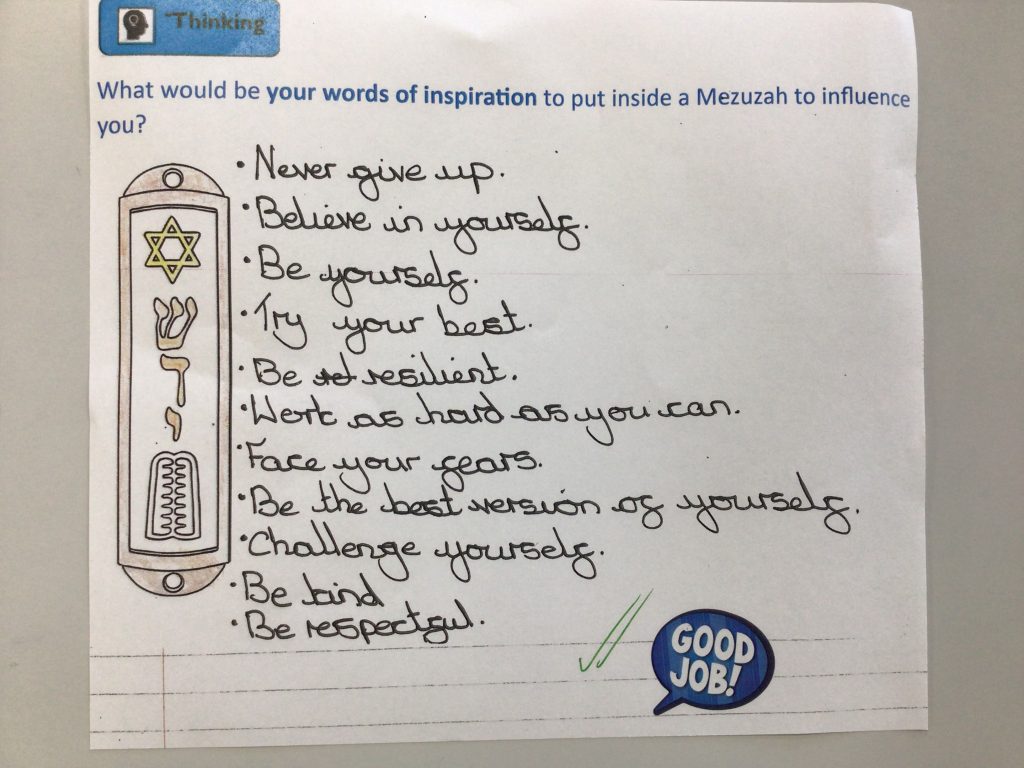 Thinking
What would be your words of inspiration to put inside a Mezuzah to influence
you?
• Never give up.
• Believe in yourself.
• Be yourself.
• Try your best.
• Be resilient.
• Work as hard as you can.
• Face your fears.
• Be the best version of yourself.
• Challenge yourself.
• Be kind
• Be respectful.
ש
ד
י
GOOD
JOB!